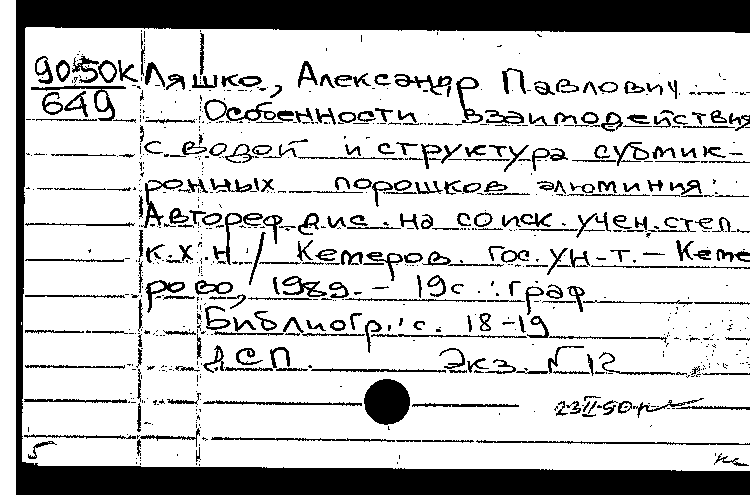 90-50К Ляшко, Александр Павлович
649 Особенности взаимодействия
с водой и структура субмик-
ронных порошков алюминия:
Автореф.дис. на соиск. учен. степ
к.х.н / Кемеров. гос. ун-т. – Кеме
рово, 1989. – 19с.: граф
Библиогр.: с. 18-19
ДСП. Экз. N 12
23 II-90г
5